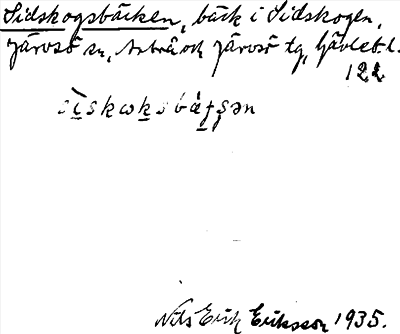 Sidskogsbäcken, bäck i Sidskogen,
Järvsö sn, Arbrå och Järvsö tg, Gävleb. l.
122
Nils Erik Eriksson 1935.